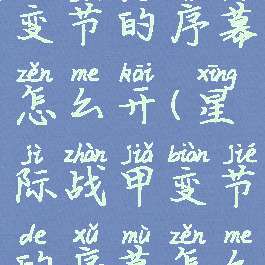 变节的序幕
zěn me kāi xīng
怎么开(星
jì zhàn jiǎ biàn jié
际战甲变节
de xǔ mù zěn me
的序幕怎么